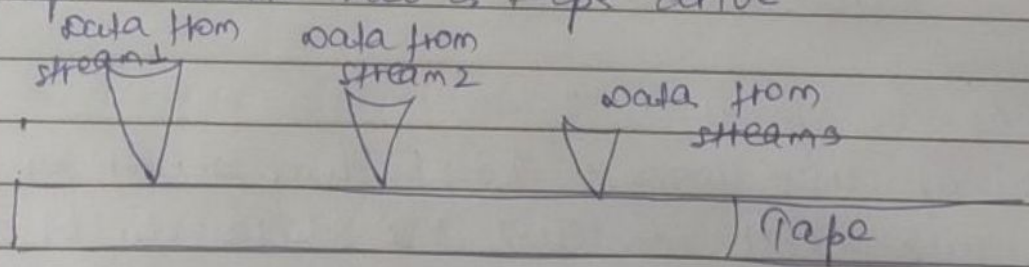 Data from
stream1
Data from
stream2
Data from
stream3
Tape